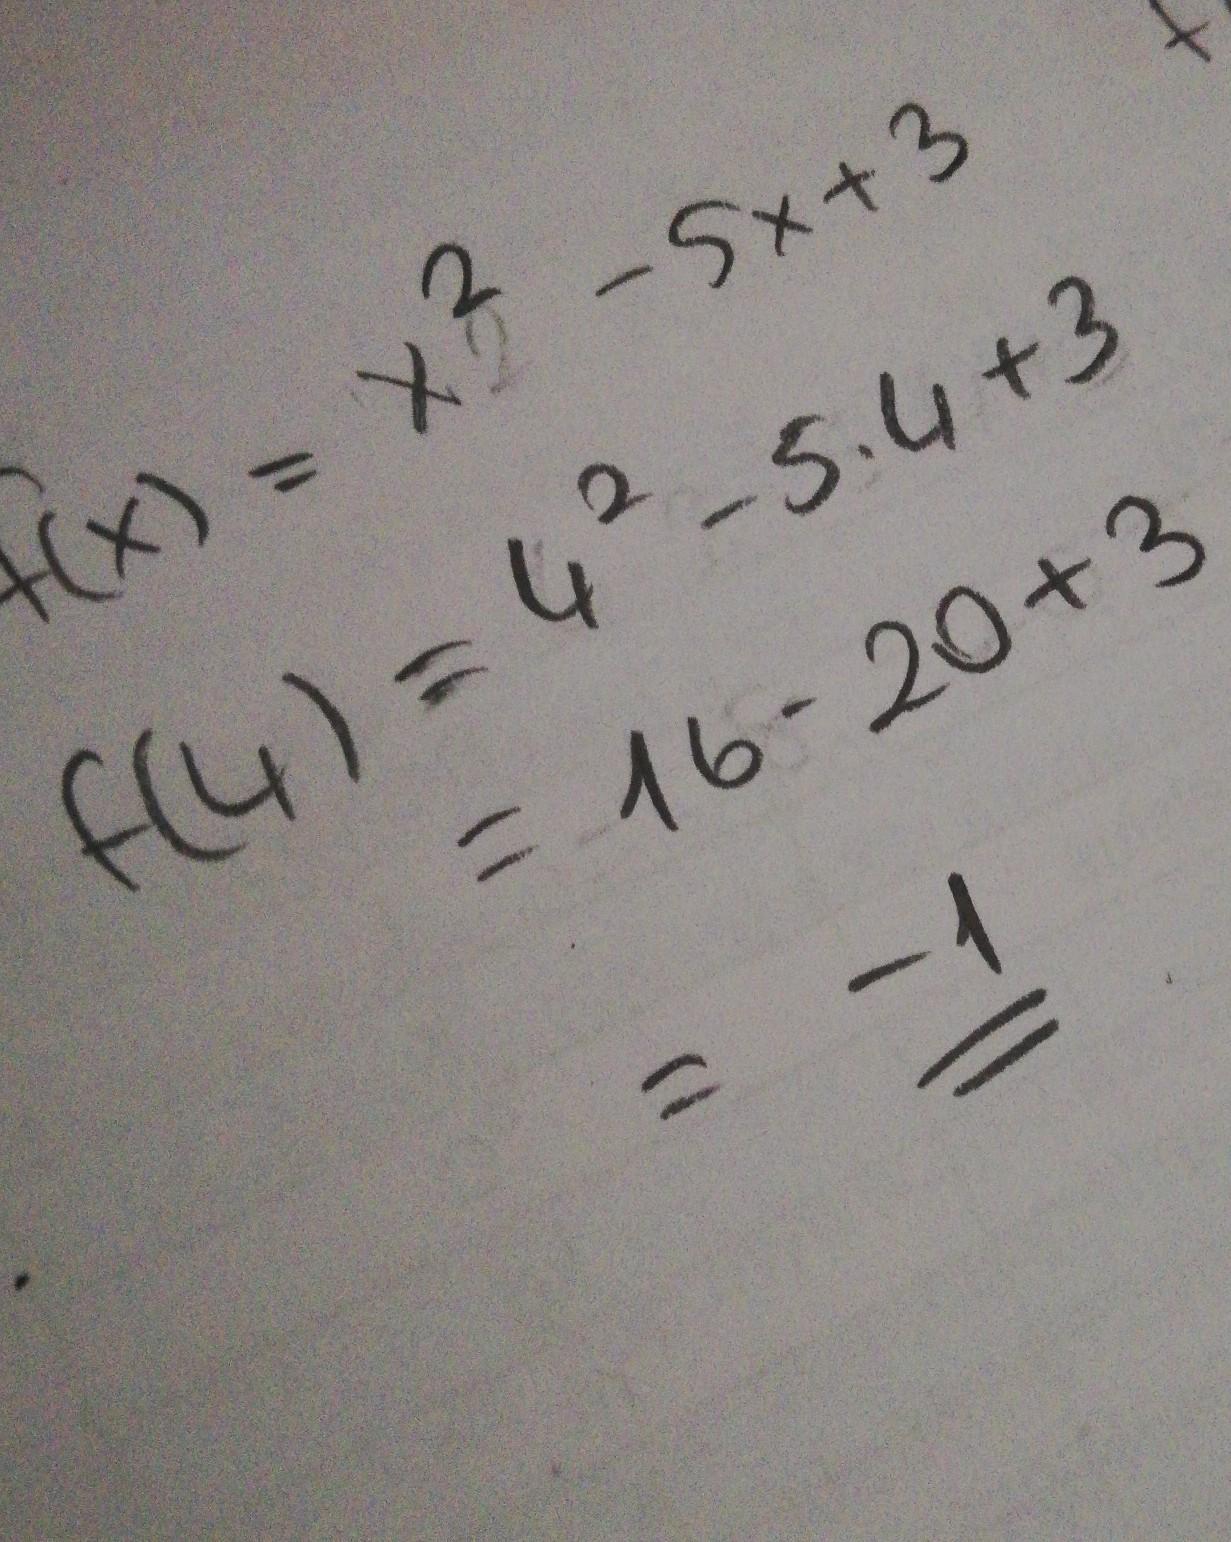 f(x) = x² - 5x + 3
f(4) = 4² - 5.4 + 3
= 16 - 20 + 3
= -1